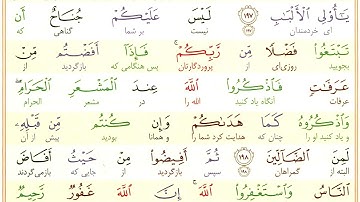 يَـٰٓأُو۟لِى ٱلْأَلْبَـٰبِ ١٩٧ لَيْسَ عَلَيْكُمْ جُنَاحٌ أَن
ای خردمندان ۱۹۷ نیست بر شما گناهی که
تَبْتَغُوا۟ فَضْلًا مِّن رَّبِّكُمْ ۚ فَإِذَآ أَفَضْتُم مِّنْ
بجویید روزی‌ای از پروردگارتان پس هنگامی که بازگردید از
عَرَفَـٰتٍ فَٱذْكُرُوا۟ ٱللَّهَ عِندَ ٱلْمَشْعَرِ ٱلْحَرَامِ ۖ
عرفات آنگاه یاد کنید الله را در مشعر الحرام
وَٱذْكُرُوهُ كَمَا هَدَىٰكُمْ وَإِن كُنتُم مِّن قَبْلِهِۦ
و یاد کنید او را چنان که هدایت کرد شما را و همانا بودید پیش از آن
لَمِنَ ٱلضَّآلِّينَ ١٩٨ ثُمَّ أَفِيضُوا۟ مِنْ حَيْثُ أَفَاضَ
البته از گمراهان ۱۹۸ سپس بازگردید از جایی که بازمی‌گردند
ٱلنَّاسُ وَٱسْتَغْفِرُوا۟ ٱللَّهَ ۚ إِنَّ ٱللَّهَ غَفُورٌ رَّحِيمٌ